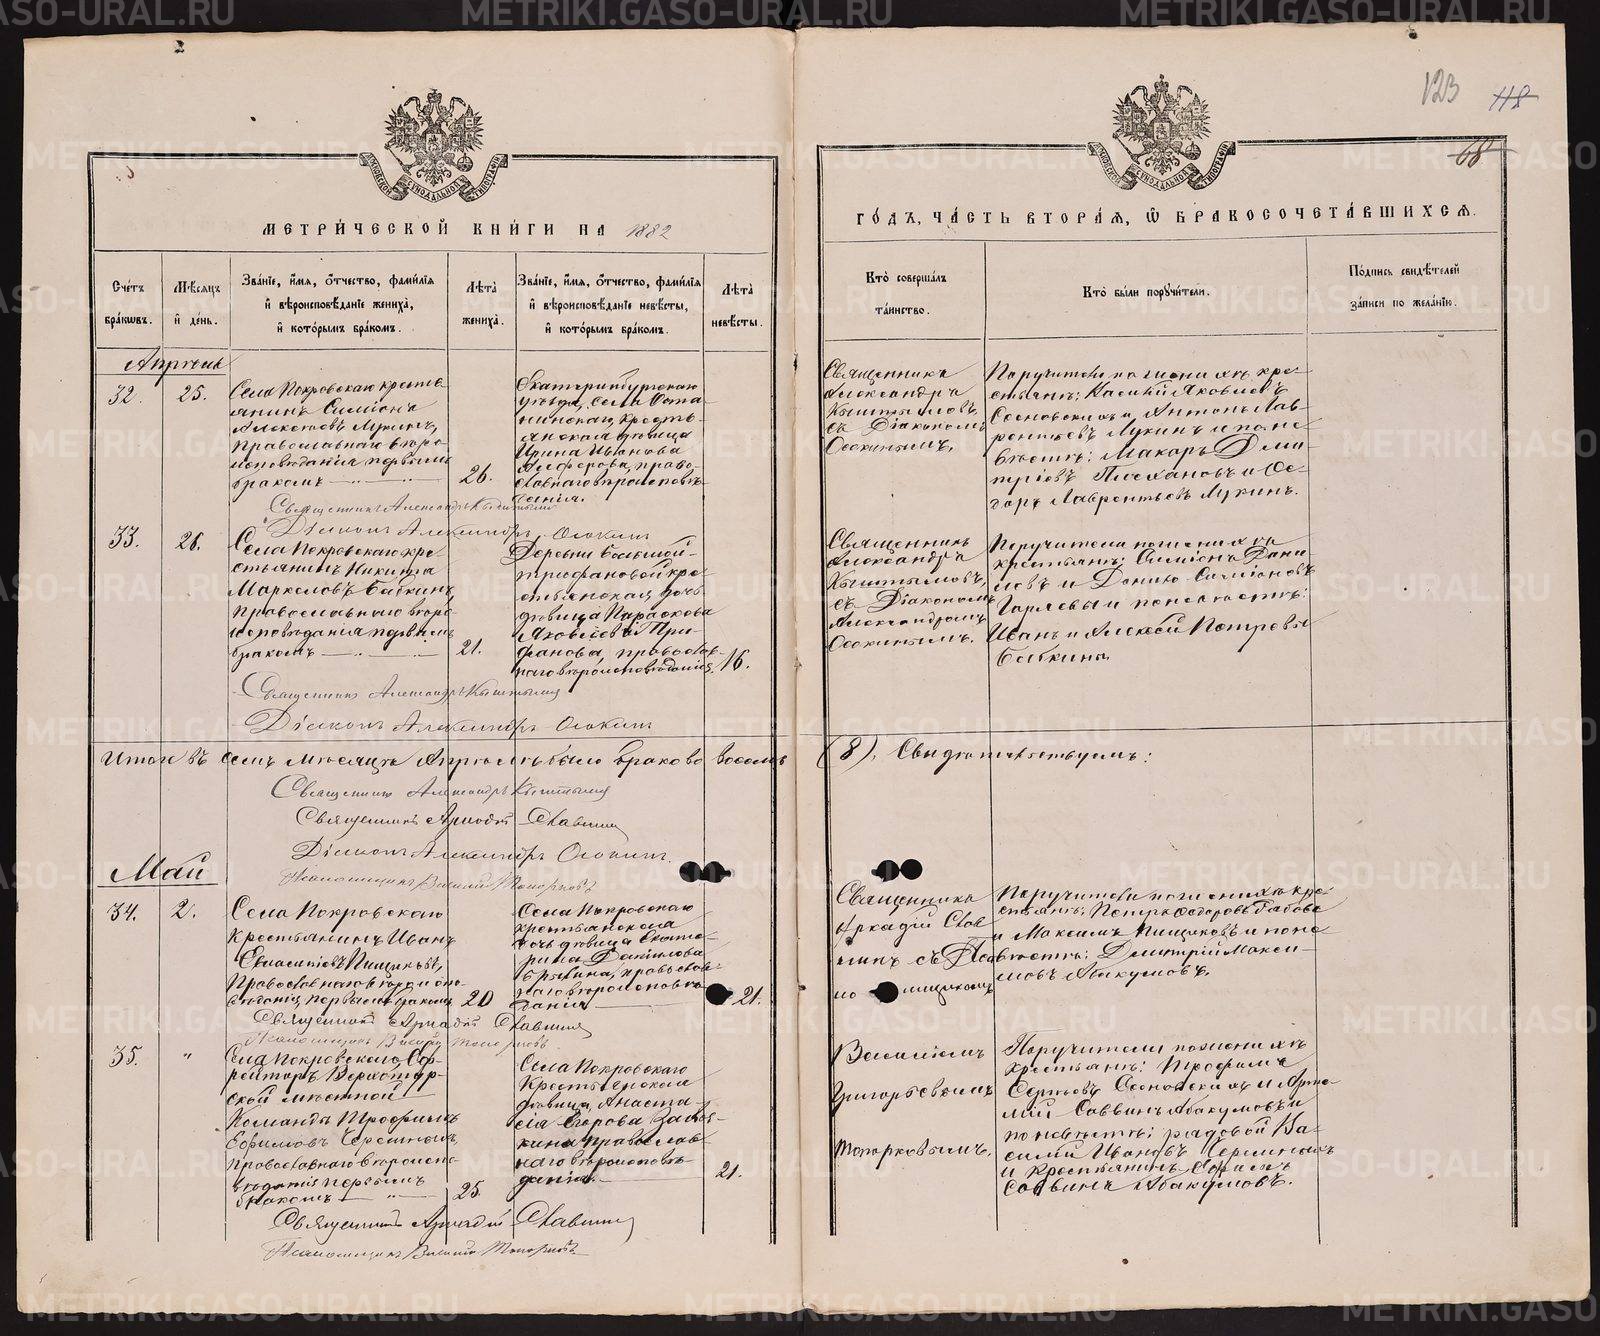 METRIKI.GASO-URAL.RU
123
118
68
МЕТРИ́ЧЕСКОЙ КНИ́ГИ НА 1882
ГО́ДЪ, ЧА́СТЬ ВТОРА́Я, Ѡ БРАКОСОЧЕТА́ВШИХСЯ.
Сче́тъ бра́кѡвъ.
Мѣ́сяцъ и де́нь.
Зва́нїе, и́мя, о́тчество, фами́лїя
и вѣроисповѣ́данїе жениха̀,
и кото́рымъ бра́комъ.
Лѣ́та жениха̀.
Зва́нїе, и́мя, о́тчество, фами́лїя
и вѣроисповѣ́данїе невѣ́сты,
и кото́рымъ бра́комъ.
Лѣ́та невѣ́сты.
Кто̀ соверша́лъ
та́инство.
Кто̀ бы́ли поручи́тели.
По́дпись свидѣ́телей
за́писи по жела́нїю.
Апрѣль
32.
25.
Села Покровскаго кресть-
янинъ Симіонъ
Алексѣевъ Лукинъ,
православнаго вѣро-
исповѣданія первымъ
бракомъ
26.
Екатеринбургскаго
уѣзда, села
крестъ-
янская дѣвица
Ирина Иванова
Алферова, право-
славнаго вѣроисповѣ-
данія.
Священника
Александръ
Кыштымовъ,
съ Діакономъ
Осокинымъ.
Поручители по женихѣ кре-
стьяне: Василій Яковлевъ
Сосновскихъ и Антонъ Лав-
рентьевъ Лукинъ и по не-
вѣстѣ: Макаръ Дми-
тріевъ Плехановъ и Ѳе-
доръ Лаврентьевъ Лукинъ.
Священникъ Александръ Кыштымовъ
Діаконъ Александръ Осокинъ
33.
28.
Села Покровскаго кре-
стьянинъ Никита
Маркеловъ Бабкинъ,
православнаго вѣро-
исповѣданія первымъ
бракомъ
21.
Деревни Большой-
Трифановой кре-
стьянская дочь
дѣвица Параскова
Яковлева Три-
фанова, православ-
наго вѣроисповѣданія,
16.
Священникъ
Александръ
Кыштымовъ,
съ Діакономъ
Александромъ
Осокинымъ.
Поручители по женихѣ
крестьяне: Симіонъ Дани-
ловъ и Данило Симіоновъ
Горяевы и по невѣстѣ:
Иванъ и Алексѣй Петровы
Бабкины.
Священникъ Александръ Кыштымовъ
Діаконъ Александръ Осокинъ
Итого въ семъ мѣсяцѣ Апрѣлѣ было браковъ восемь (8). Свидѣтельствуемъ:
Священникъ Александръ Кыштымовъ
Священникъ Аркадій Славнинъ
Діаконъ Александръ Осокинъ
Псаломщикъ Василій Топорковъ
Май
34.
2.
Села Покровскаго
крестьянинъ Иванъ
Пищиковъ,
православнаго вѣроиспо-
вѣданія, первымъ бракомъ
20
Села Покровскаго
крестьянская
дочь дѣвица Екате-
рина Данилова
православ-
наго вѣроисповѣ-
данія
21.
Священника
Аркадій Слав-
нинъ съ Пса-
ло мщикомъ
Поручители по женихѣ кре-
стьяне: Петръ Ѳедоровъ
и Максимъ Пищиковъ и по не-
вѣстѣ: Дмитрій Макси-
мовъ Абакумовъ.
Священникъ Аркадій Славнинъ
Псаломщикъ Василій Топорковъ
35.
"
Села Покровскаго Еф-
рейторъ Верхотур-
ской мѣстной
Команды Трофимъ
Ефимовъ Черемныхъ,
православнаго вѣроиспо-
вѣданія первымъ
бракомъ
25.
Села Покровскаго
крестьянская
дѣвица Анаста-
сія Егорова
православ-
наго вѣроисповѣ-
данія.
21.
Василіемъ
Григорьевымъ
Топорковымъ.
Поручители по женихѣ
крестьяне: Трофимъ
Сергѣевъ Сосновскихъ и Арте-
мій Саввинъ Абакумовъ и
по невѣстѣ: рядовой Ва-
силій Ивановъ Черемныхъ
и крестьянинъ Ефимъ
Саввинъ Абакумовъ.
Священникъ Аркадій Славнинъ
Псаломщикъ Василій Топорковъ